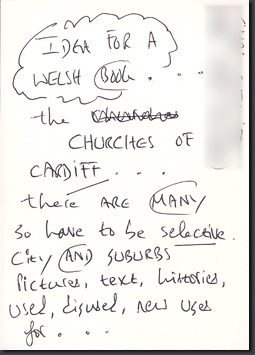 IDEA FOR A
WELSH Book. . .
the
CHURCHES OF
CARDIFF . . .
there ARE MANY
so have to be selective.
City AND SUBURBS
Pictures, text, histories,
used, disused, new uses
for . . .